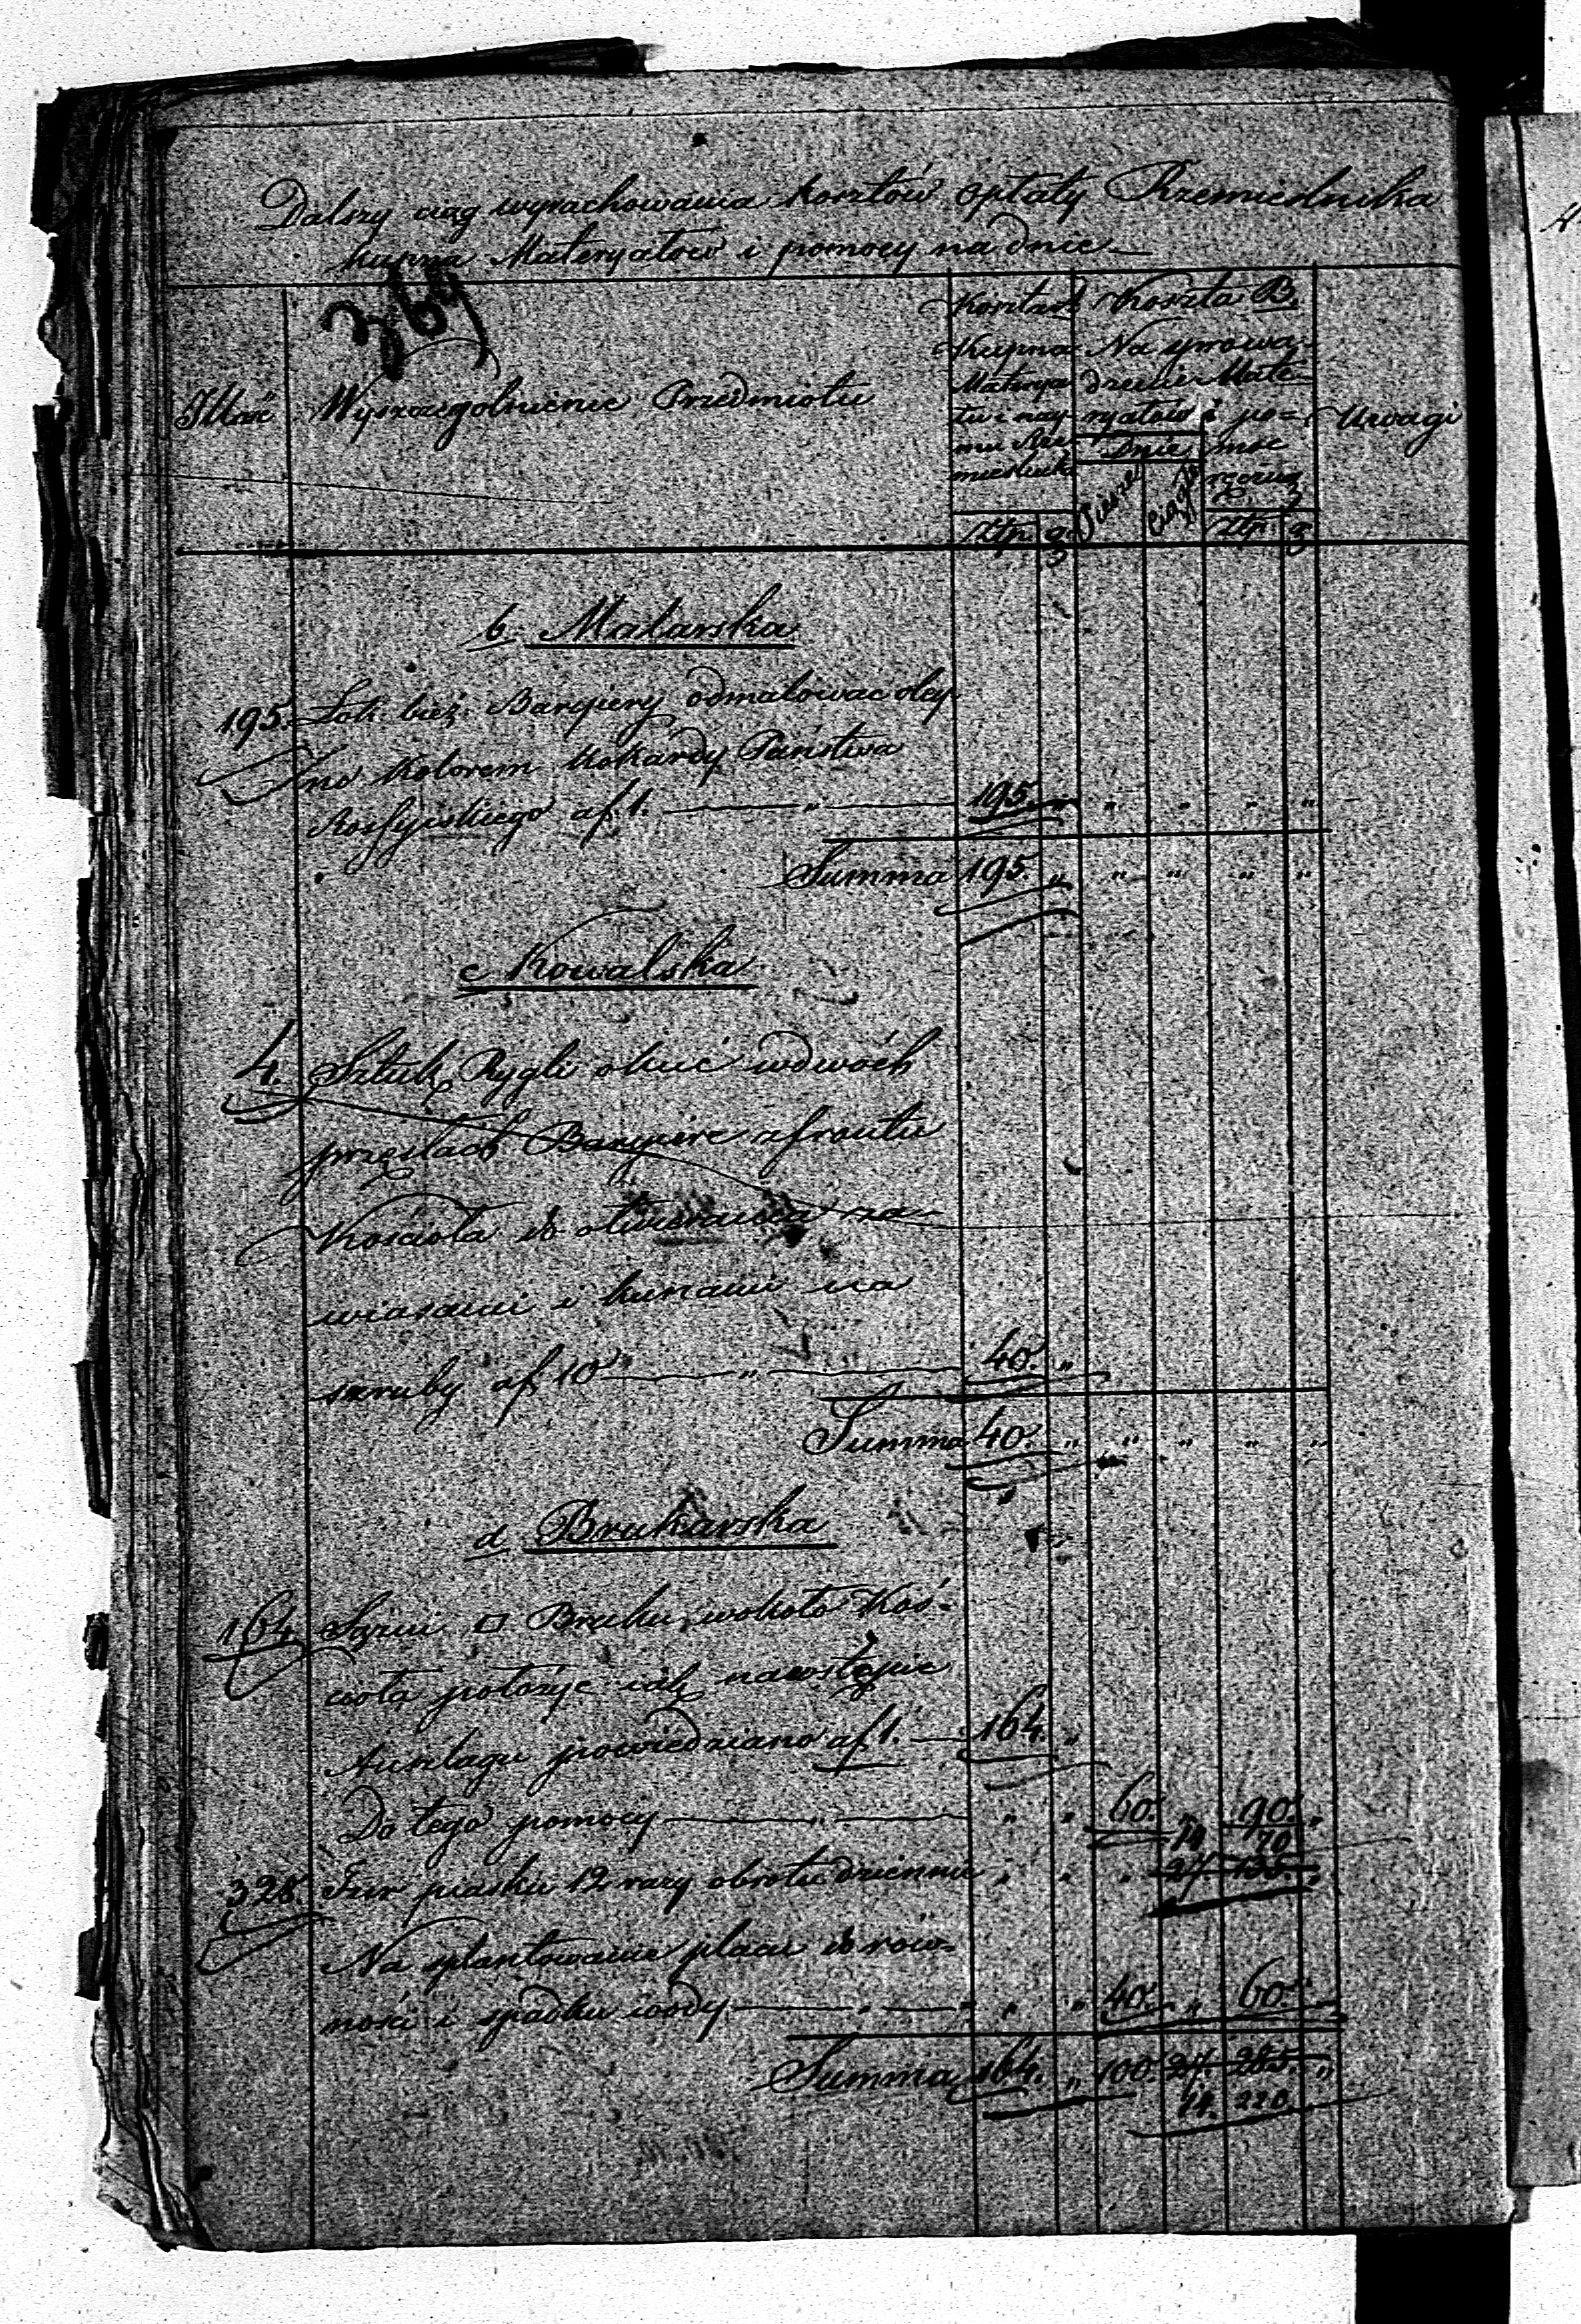 Dalszy ciąg wyrachowania kosztów opłaty Rzemieślnika
kupna Materyałów i pomocy na dnie
369
Illość
Wyszczegolnienie Przedmiotu
Koszta
Kupna
Materya
łu i naj-
mu Rze
mieślnik
Złp. g
Koszta B.
Na sprowa-
dzenie Mate-
ryałów i po=
Dnie moc
ręczną
Piesze Ciągłe Złp. g
Uwagi
b. Malarska
195. Łok. bież. Baryiery odmalować oley-
no Kolorem Kokardy Państwa
Rossyiskiego af 1. — „ — 195. „ „ „ „ „
Summa 195. „ „ „ „ „
c Kowalska
4. Sztuk Rygli okuć w dwóch
przęsłach Baryiere z frontu
Kościoła do otwierania za-
wiasami i kunami na
szruby af 10 — „ — 40. „
Summa 40. „ „ „ „ „
d Brukarska
164 Sążni □ Bruku wokoło Koś=
cioła położyć idk na wstępie
Anszlagu powiedziano af 1. — 164. „
Do tego pomocy — „ — „ „ 60. „ 90. „
14 70
328. Fur piasku 12 razy obrotu dziennie „ „ „ 27. 135. „
Na splantowanie placu do rów-
ności i spadku wody — „ — „ „ 40. „ 60. „
Summa 164. „ 100. 27. 285. „
14. 220.